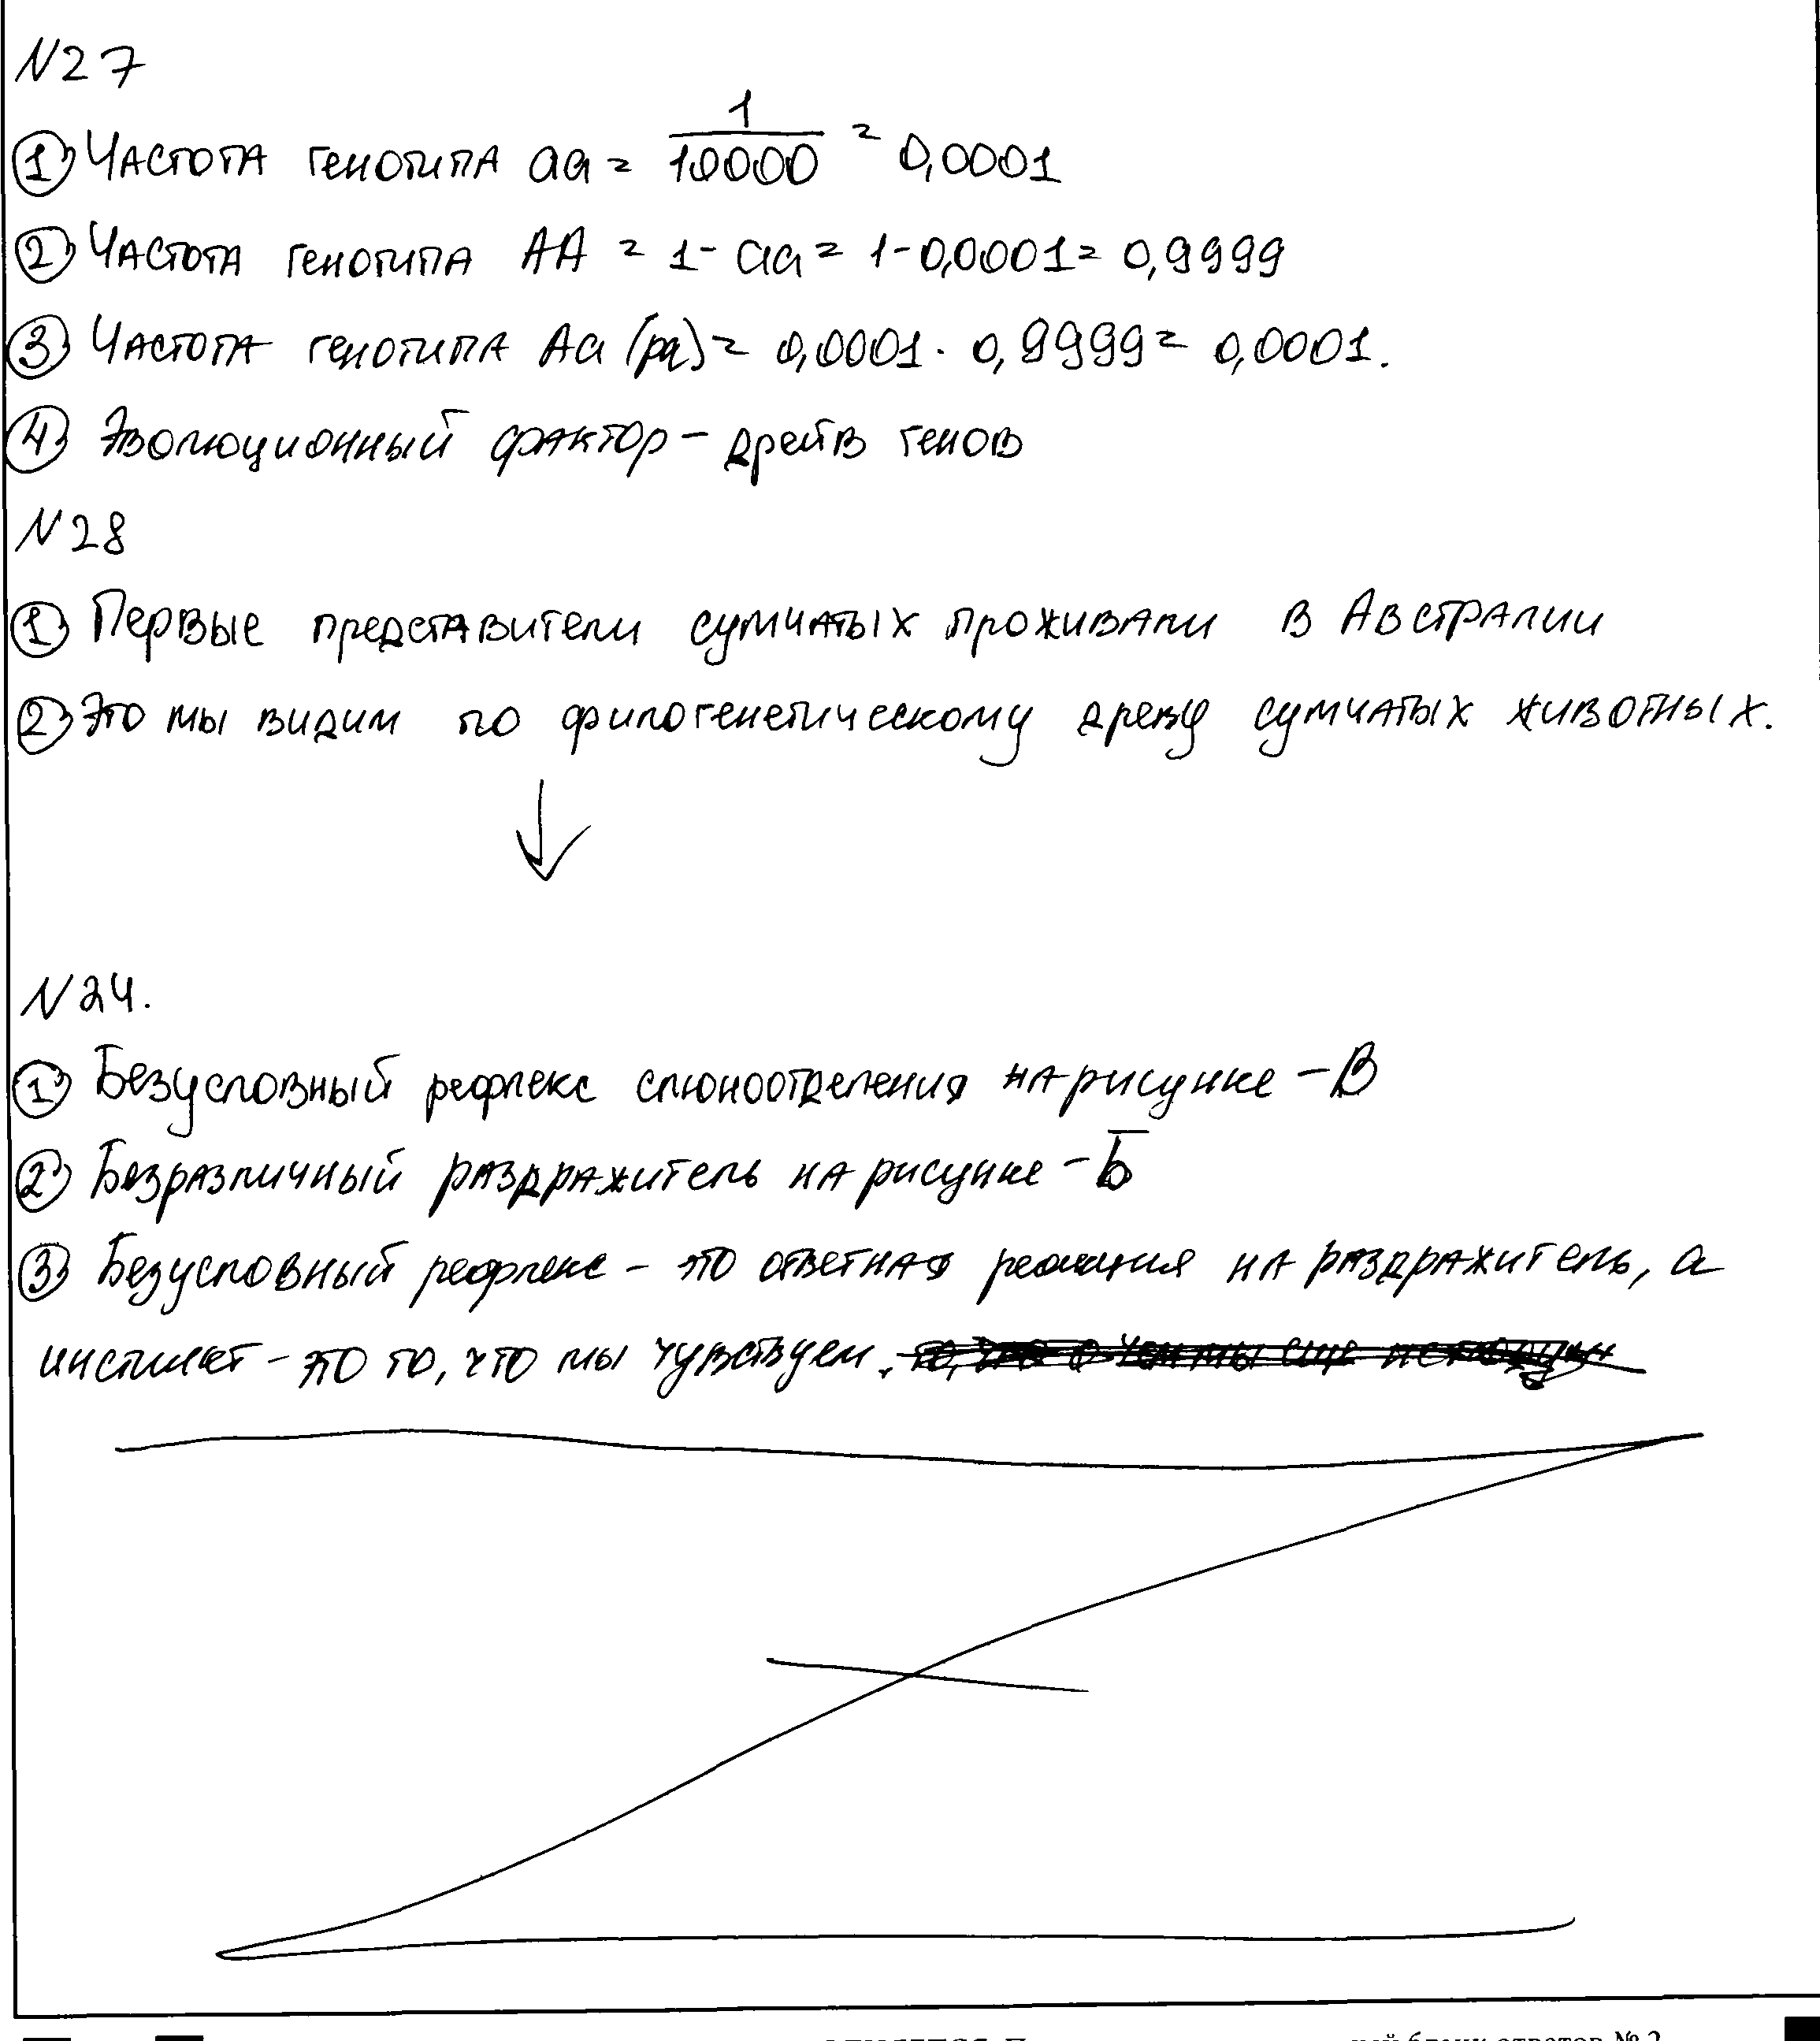 N27
① Частота генотипа aa = 1/10000 = 0,0001
② Частота генотипа AA = 1 - aa = 1-0,0001 = 0,9999
③ Частота генотипа Aa (pq) = 0,0001 · 0,9999 = 0,0001.
④ Эволюционный фактор - дрейв генов
N28
① Первые представители сумчатых проживали в Австралии
② Это мы видим по филогенетическому древу сумчатых животных.
N24.
① Безусловный рефлекс слюноотделения на рисунке - В
② Безразличный раздражитель на рисунке - Б
③ Безусловный рефлекс - это ответная реакция на раздражитель, а
инстинкт - это то, что мы чувствуем.
бланк ответов № 2